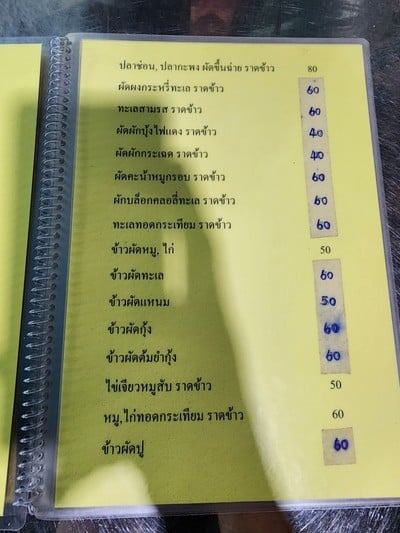 ปลาช่อน, ปลากะพง ผัดขึ้นฉ่าย ราดข้าว 80
ผัดผงกระหรี่ทะเล ราดข้าว 60
ทะเลสามรส ราดข้าว 60
ผัดผักบุ้งไฟแดง ราดข้าว 40
ผัดผักกระเฉด ราดข้าว 40
ผัดคะน้าหมูกรอบ ราดข้าว 60
ผักบล็อกคลอลี่ทะเล ราดข้าว 60
ทะเลทอดกระเทียม ราดข้าว 60
ข้าวผัดหมู, ไก่ 50
ข้าวผัดทะเล 60
ข้าวผัดแหนม 50
ข้าวผัดกุ้ง 60
ข้าวผัดต้มยำกุ้ง 60
ไข่เจียวหมูสับ ราดข้าว 50
หมู,ไก่ทอดกระเทียม ราดข้าว 60
ข้าวผัดปู 60